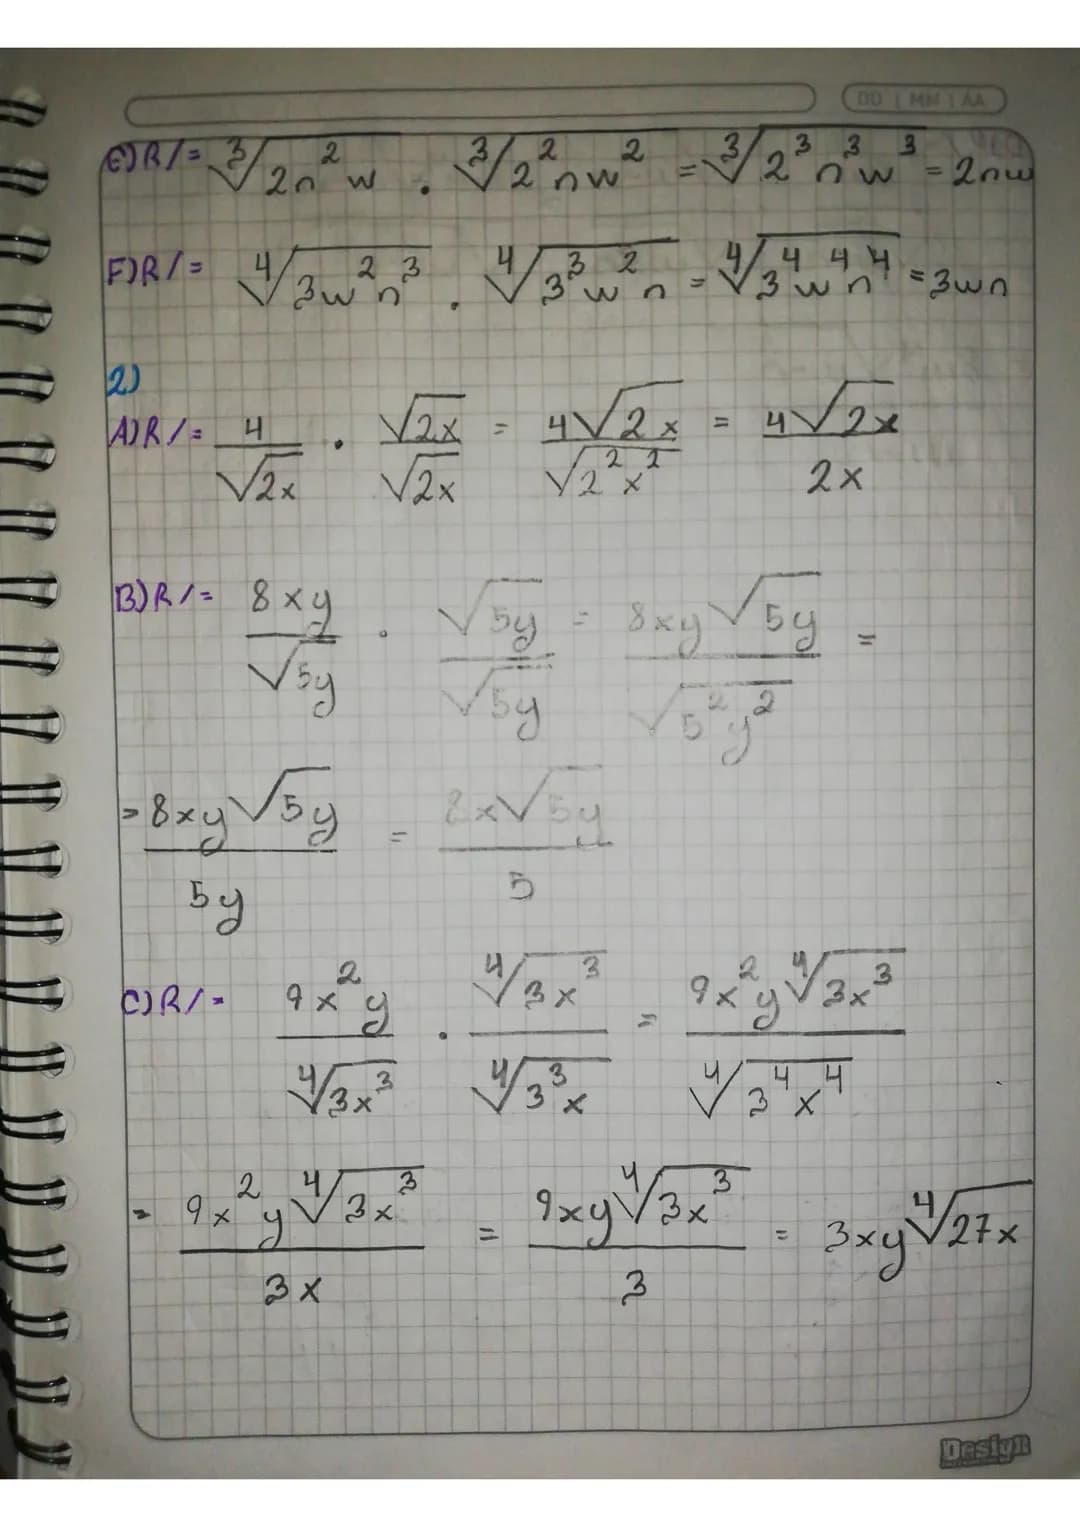 DD | MM | AA
E) R/= ∛(2n²w) . ∛(2²nw²) = ∛(2³n³w³) = 2nw
F) R/= ∜(3w²n³) . ∜(3³w²n) = ∜(3⁴w⁴n⁴) = 3wn
2)
A) R/= 4/√(2x) . √(2x)/√(2x) = 4√(2x)/√(2²x²) = 4√(2x)/2x
B) R/= 8xy/√(5y) . √(5y)/√(5y) = 8xy√(5y)/√(5²y²) =
= 8xy√(5y)/5y = 8x√(5y)/5
C) R/= 9x²y/∜(3x³) . ∜(3x³)/∜(3³x) = 9x²y∜(3x³)/∜(3⁴x⁴)
= 9x²y∜(3x³)/3x = 9xy∜(3x³)/3 = 3xy∜(27x)
Design